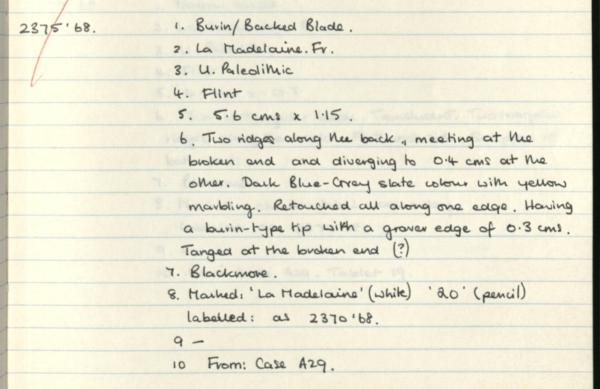 2375'68. 1. Burin/Backed Blade.
2. La Madelaine. Fr.
3. U. Paleolithic
4. Flint
5. 5.6 cms x 1.15.
6. Two ridges along the back, meeting at the
broken end and diverging to 0.4 cms at the
other. Dark Blue-Grey slate colour with yellow
marbling. Retouched all along one edge. Having
a burin-type tip with a graver edge of 0.3 cms.
Tanged at the broken end (?)
7. Blackmore.
8. Marked: 'La Madelaine' (white) '20' (pencil)
labelled: as 2370'68.
9 —
10 From: Case A29.